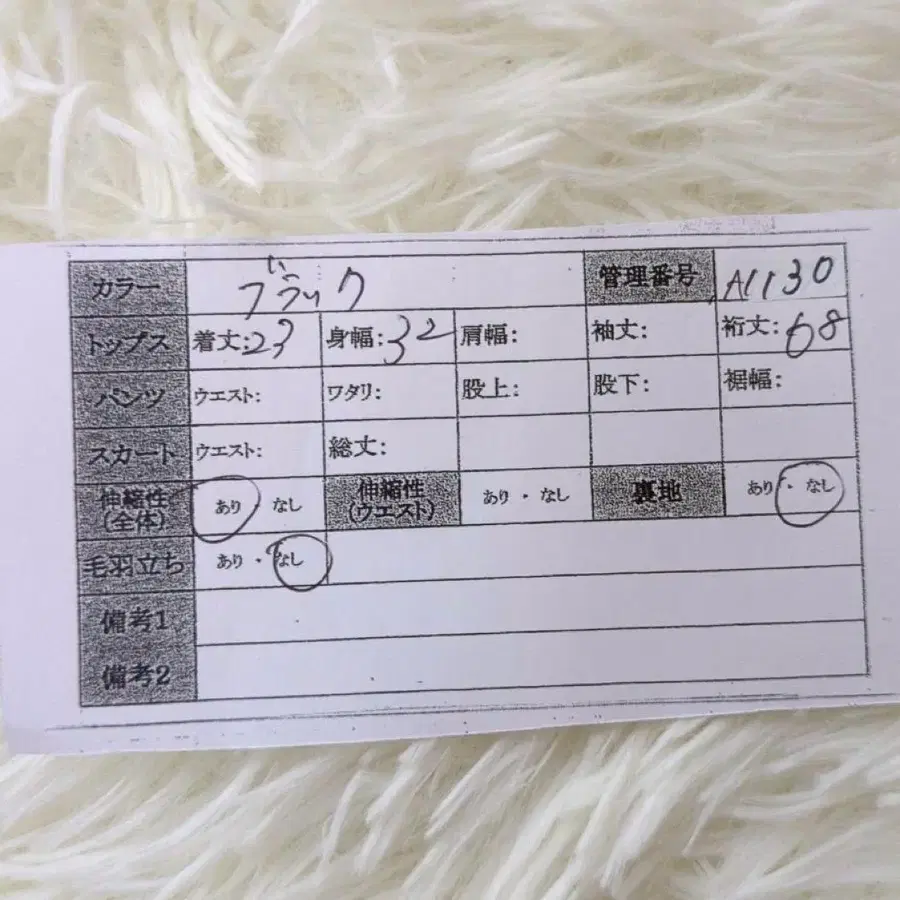 カラー ブラック 管理番号 A1130
トップス 着丈:23 身幅:32 肩幅: 袖丈: 裄丈:68
パンツ ウエスト: ワタリ: 股上: 股下: 裾幅:
スカート ウエスト: 総丈:
伸縮性(全体) あり ・ なし 伸縮性(ウエスト) あり ・ なし 裏地 あり ・ なし
毛羽立ち あり ・ なし
備考1
備考2